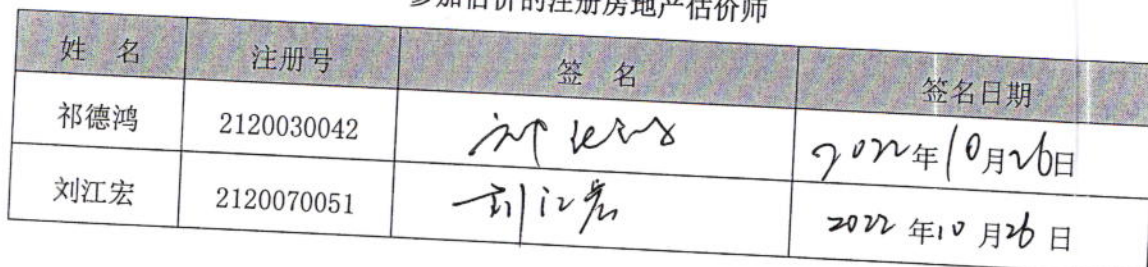 参加估价的注册房地产估价师
姓 名 注册号 签 名 签名日期
祁德鸿 2120030042 祁德鸿 2022年10月26日
刘江宏 2120070051 刘江宏 2022年10月26日